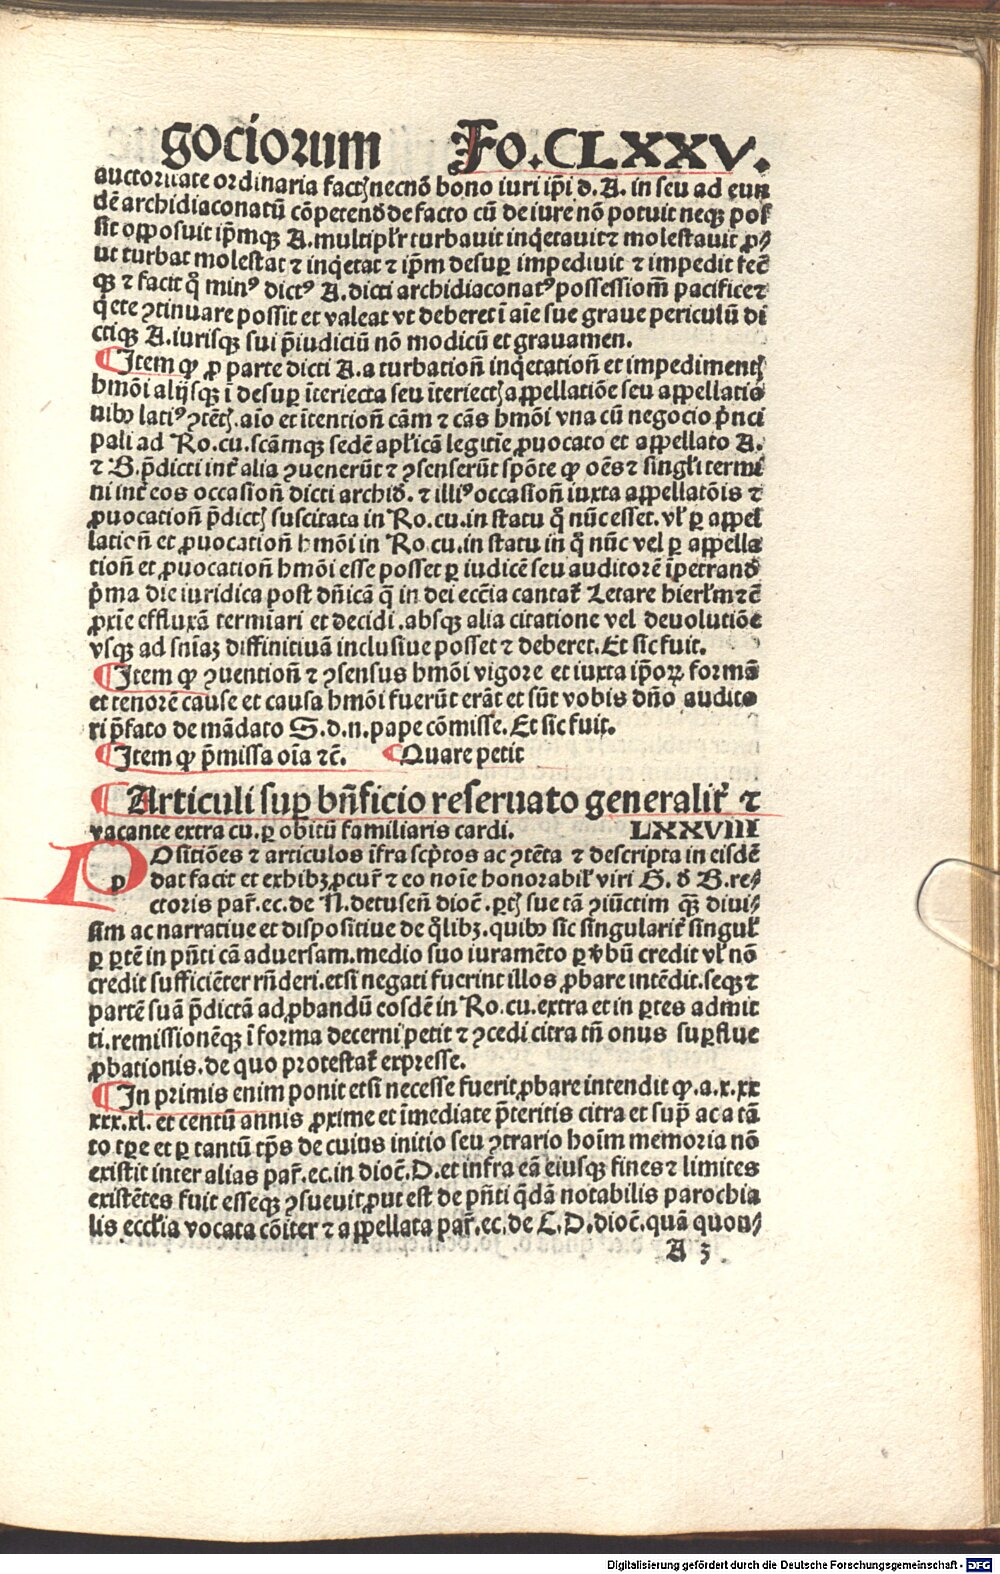 gociorum Fo.CLXXV.
auctoritate ordinaria factꝭ necnō bono iuri ip̄i d. A. in seu ad eun
dē archidiaconatū cōpetend̄ de facto cū de iure nō potuit neqꝫ pos
sit opposuit ip̄mqꝫ A. multipl'r turbauit inq̇etauit ⁊ molestauit ꝓ⸗
ut turbat molestat ⁊ inq̇etat ⁊ ip̄m desuꝑ impediuit ⁊ impedit fec̄
qꝫ ⁊ facit q̊ minꝰ dictꝰ A. dicti archidiaconatꝰ possessioīm pacifice ⁊
q̇ete ꝯtinuare possit et valeat vt deberet ī aīe sue graue periculū di
ctiqꝫ A. iurisqꝫ sui p̄iudiciū nō modicū et grauamen.
¶ Item ꝙ ꝓ parte dicti A. a turbation̄ inq̇etation̄ et impedimentꝭ
hmōi alijsqꝫ ī desuꝑ īteriecta seu īteriectꝭ appellatiōe seu appellatio
nibꝰ latiꝰ ꝯtētꝭ. aīo et ītention̄ cām ⁊ cās hmōi vna cū negocio pͥnci
pali ad Ro.cu.scāmqꝫ sedē apl'icā legitīe ꝓuocato et appellato A.
⁊ B. p̄dicti int̄ alia ꝯuenerūt ⁊ ꝯsenserūt spōte ꝙ oēs ⁊ singl'i termi
ni int̄ eos occasion̄ dicti archid̄. ⁊ illiꝰ occasion̄ iuxta appellatōis ⁊
ꝓuocation̄ p̄dictꝭ suscitata in Ro.cu.in statu q̊ nūc esset. vl' ꝑ appel
lation̄ et ꝓuocation̄ hmōi in Ro.cu.in statu in q̊ nūc vel ꝑ appella
tion̄ et ꝓuocation̄ hmōi esse posset ꝑ iudicē seu auditorē īpetrand̄
pͥma die iuridica post dn̄icā q̄ in dei ecc̄ia cantat̄ Letare hierl'm ⁊c̄
ꝓxīe effluxā termīari et decidi. absqꝫ alia citatione vel deuolutiōe
vsqꝫ ad sniaꝫ diffinitiuā inclusiue posset ⁊ deberet. Et sic fuit.
¶ Item ꝙ ꝯuention̄ ⁊ ꝯsensus hmōi vigore et iuxta ip̄oꝝ formā
et tenorē cause et causa hmōi fuerūt erāt et sūt vobis dn̄o audito
ri p̄fato de mādato S.d.n.pape cōmisse. Et sic fuit.
¶ Item ꝙ p̄missa oīa ⁊c̄. ¶ Quare petit
¶ Articuli suꝑ bn̄ficio reseruato generalit̄ ⁊
vacante extra cu. ꝑ obitū familiaris cardi. LXXVIII
P Ositiōes ⁊ articulos īfra scp̄tos ac ꝯtēta ⁊ descripta in eisdē
p dat facit et exhibꝫ ꝓcur̄ ⁊ eo noīe honorabil' viri G. d̄ B. re⸗
ctoris par̄. ec. de N. detusen̄ dioc̄. ꝑtꝭ sue tā ꝯiūctim qꝫ diui⸗
sim ac narratiue et dispositiue de q̇libꝫ. quibꝰ sic singularit̄ singul'
ꝑ ꝑtē in pn̄ti cā aduersam. medio suo iuramēto ꝑ v̄bū credit vl' nō
credit sufficiēter rn̄deri. et si negati fuerint illos ꝓbare intēdit. seqꝫ ⁊
partē suā p̄dictā ad ꝓbandū eosdē in Ro.cu.extra et in ꝑtes admit
ti. remissionēqꝫ ī forma decerni petit ⁊ ꝯcedi citra tn̄ onus suꝑflue
ꝓbationis. de quo protestat̄ expresse.
¶ In primis enim ponit et si necesse fuerit ꝓbare intendit ꝙ .a.x.xx
xxx.xl. et centū annis ꝓxime et īmediate p̄teritis citra et sup̄ ac a tā
to tp̄e et ꝑ tantū tp̄s de cuius initio seu ꝯtrario hoīm memoria nō
existit inter alias par̄.ec.in dioc̄.D. et infra eā eiusqꝫ fines ⁊ limites
existētes fuit esseqꝫ ꝯsueuit ꝓut est de pn̄ti q̄dā notabilis parochia
lis eccl'ia vocata cōiter ⁊ appellata par̄.ec.de C.D.dioc̄.quā quon⸗
A 3
Digitalisierung gefördert durch die Deutsche Forschungsgemeinschaft - DFG